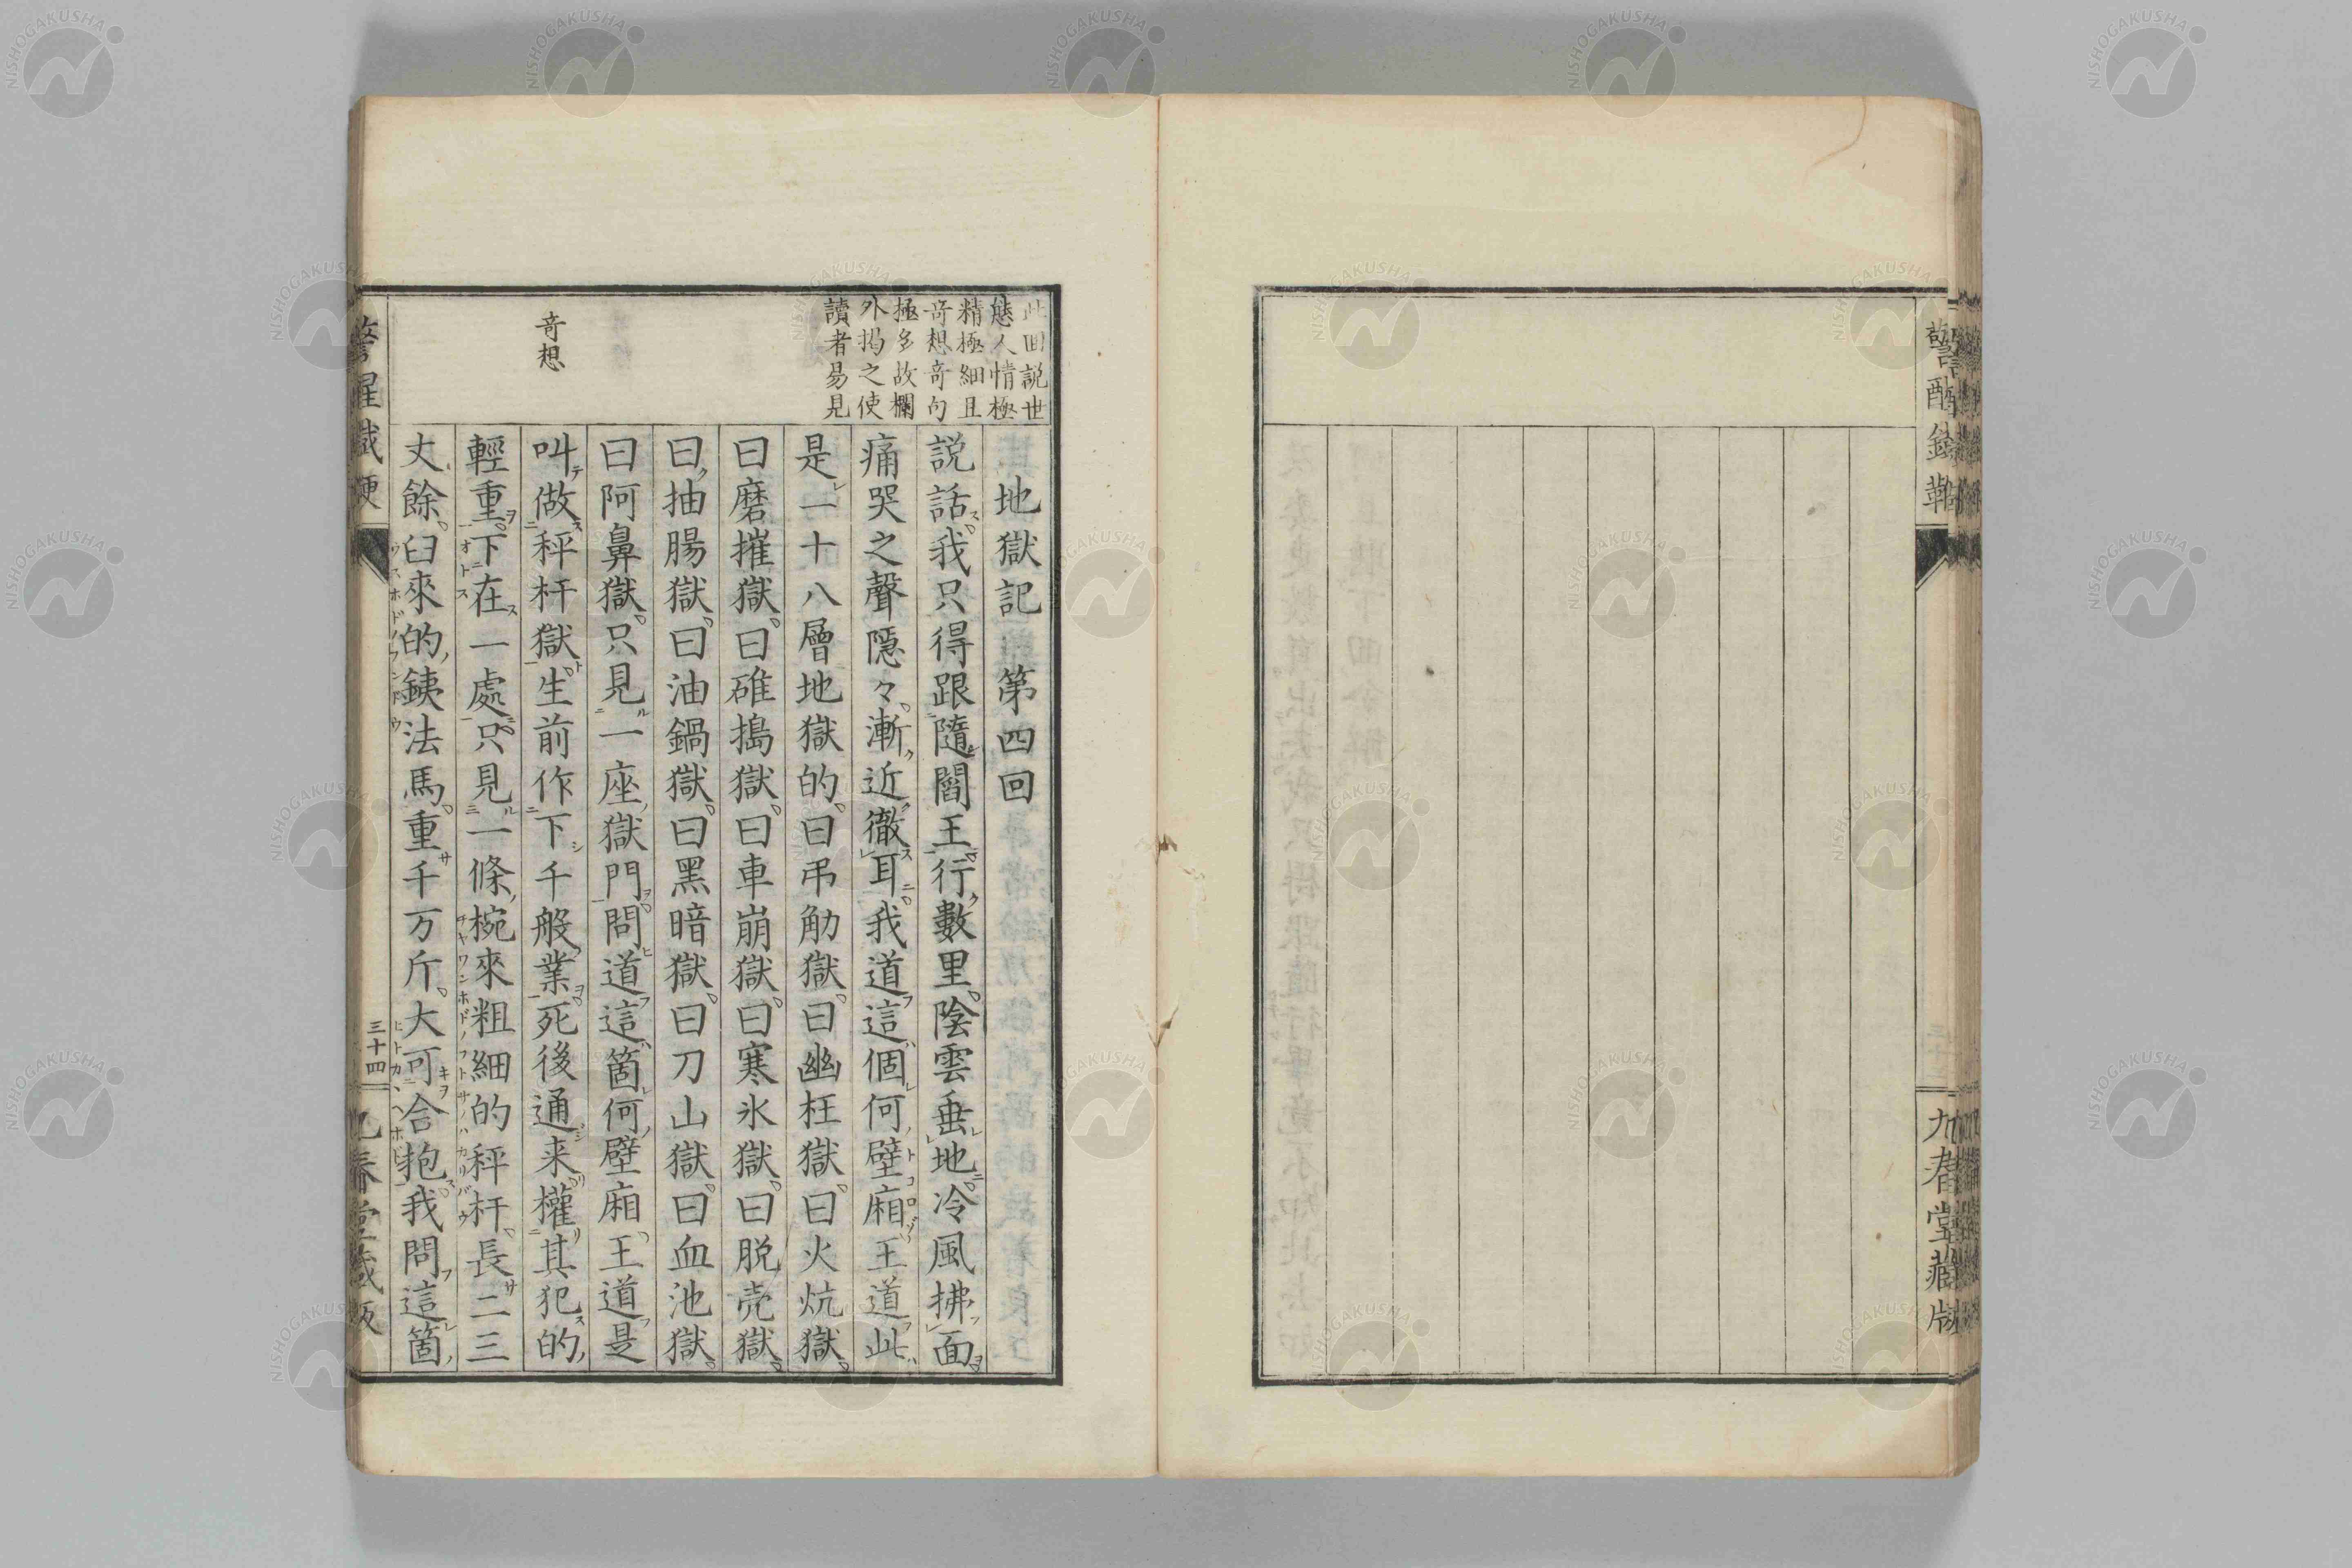 九春堂藏版
此回説世
態人情極
精極細且
奇想奇句
極多故欄
外掲之使
讀者易見
奇想
地獄記 第四回
説話我只得跟隨閻王行數里陰雲垂地冷風拂面
痛哭之聲隱々漸近徹耳我道這個何壁廂王道此
是一十八層地獄的曰弔觔獄曰幽枉獄曰火炕獄
曰磨摧獄曰碓搗獄曰車崩獄曰寒氷獄曰脱壳獄
曰抽腸獄曰油鍋獄曰黑暗獄曰刀山獄曰血池獄
曰阿鼻獄只見一座獄門問道這箇何壁廂王道是
叫做秤杆獄生前作下千般業死後通来權其犯的
輕重下在一處只見一條椀來粗細的秤杆長二三
丈餘臼來的銕法馬重千万斤大可合抱我問這箇
三十四
NISHOGAKUSHA